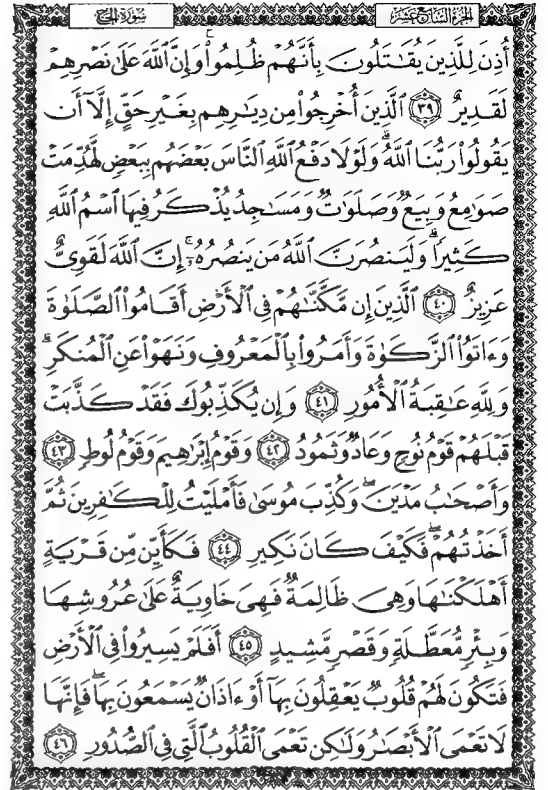 الجزء السابع عشر
سورة الحج
أُذِنَ لِلَّذِينَ يُقَٰتَلُونَ بِأَنَّهُمْ ظُلِمُوا۟ ۚ وَإِنَّ ٱللَّهَ عَلَىٰ نَصْرِهِمْ
لَقَدِيرٌ ﴿٣٩﴾ ٱلَّذِينَ أُخْرِجُوا۟ مِن دِيَٰرِهِم بِغَيْرِ حَقٍّ إِلَّآ أَن
يَقُولُوا۟ رَبُّنَا ٱللَّهُ ۗ وَلَوْلَا دَفْعُ ٱللَّهِ ٱلنَّاسَ بَعْضَهُم بِبَعْضٍ لَّهُدِّمَتْ
صَوَٰمِعُ وَبِيَعٌ وَصَلَوَٰتٌ وَمَسَٰجِدُ يُذْكَرُ فِيهَا ٱسْمُ ٱللَّهِ
كَثِيرًا ۗ وَلَيَنصُرَنَّ ٱللَّهُ مَن يَنصُرُهُۥٓ ۗ إِنَّ ٱللَّهَ لَقَوِىٌّ
عَزِيزٌ ﴿٤٠﴾ ٱلَّذِينَ إِن مَّكَّنَّٰهُمْ فِى ٱلْأَرْضِ أَقَامُوا۟ ٱلصَّلَوٰةَ
وَءَاتَوُا۟ ٱلزَّكَوٰةَ وَأَمَرُوا۟ بِٱلْمَعْرُوفِ وَنَهَوْا۟ عَنِ ٱلْمُنكَرِ ۗ
وَلِلَّهِ عَٰقِبَةُ ٱلْأُمُورِ ﴿٤١﴾ وَإِن يُكَذِّبُوكَ فَقَدْ كَذَّبَتْ
قَبْلَهُمْ قَوْمُ نُوحٍ وَعَادٌ وَثَمُودُ ﴿٤٢﴾ وَقَوْمُ إِبْرَٰهِيمَ وَقَوْمُ لُوطٍ ﴿٤٣﴾
وَأَصْحَٰبُ مَدْيَنَ ۖ وَكُذِّبَ مُوسَىٰ فَأَمْلَيْتُ لِلْكَٰفِرِينَ ثُمَّ
أَخَذْتُهُمْ ۖ فَكَيْفَ كَانَ نَكِيرِ ﴿٤٤﴾ فَكَأَيِّن مِّن قَرْيَةٍ
أَهْلَكْنَٰهَا وَهِىَ ظَالِمَةٌ فَهِىَ خَاوِيَةٌ عَلَىٰ عُرُوشِهَا
وَبِئْرٍ مُّعَطَّلَةٍ وَقَصْرٍ مَّشِيدٍ ﴿٤٥﴾ أَفَلَمْ يَسِيرُوا۟ فِى ٱلْأَرْضِ
فَتَكُونَ لَهُمْ قُلُوبٌ يَعْقِلُونَ بِهَآ أَوْ ءَاذَانٌ يَسْمَعُونَ بِهَا ۖ فَإِنَّهَا
لَا تَعْمَى ٱلْأَبْصَٰرُ وَلَٰكِن تَعْمَى ٱلْقُلُوبُ ٱلَّتِى فِى ٱلصُّدُورِ ﴿٤٦﴾